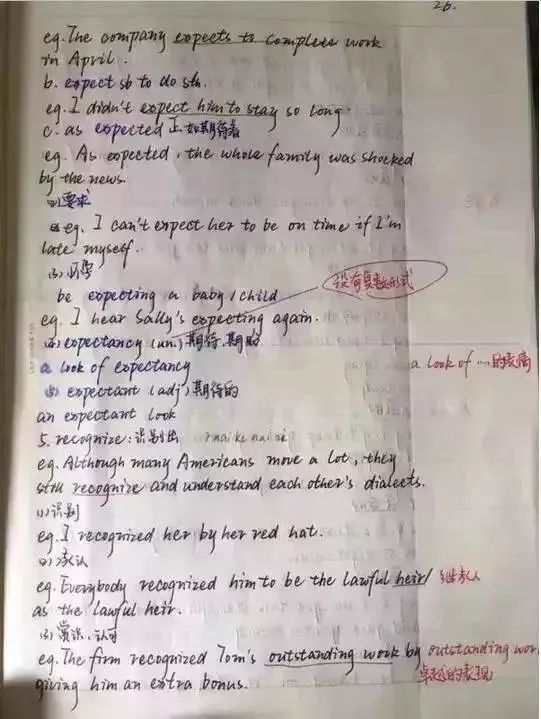 26.
eg. The company expects to complete work
in April.
b. expect sb to do sth.
eg. I didn't expect him to stay so long
c. as expected 正如期待者
eg. As expected, the whole family was shocked
by the news.
(2) 要求
eg. I can't expect her to be on time if I'm
late myself.
(3) 怀孕
be expecting a baby / child
没有复数形式
eg. I hear Sally's expecting again.
(4) expectancy (un.) 期待, 期盼
a look of expectancy
a look of ... 的表情
(5) expectant (adj) 期待的
an expectant look
5. recognize: 识别出
eg. Although many Americans move a lot, they
still recognize and understand each other's dialects.
(1) 识别
eg. I recognized her by her red hat.
(2) 承认
eg. Everybody recognized him to be the lawful heir / 继承人
as the lawful heir.
(3) 赏识, 认可
eg. The firm recognized Tom's outstanding work by outstanding wor
giving him an extra bonus. 卓越的表现